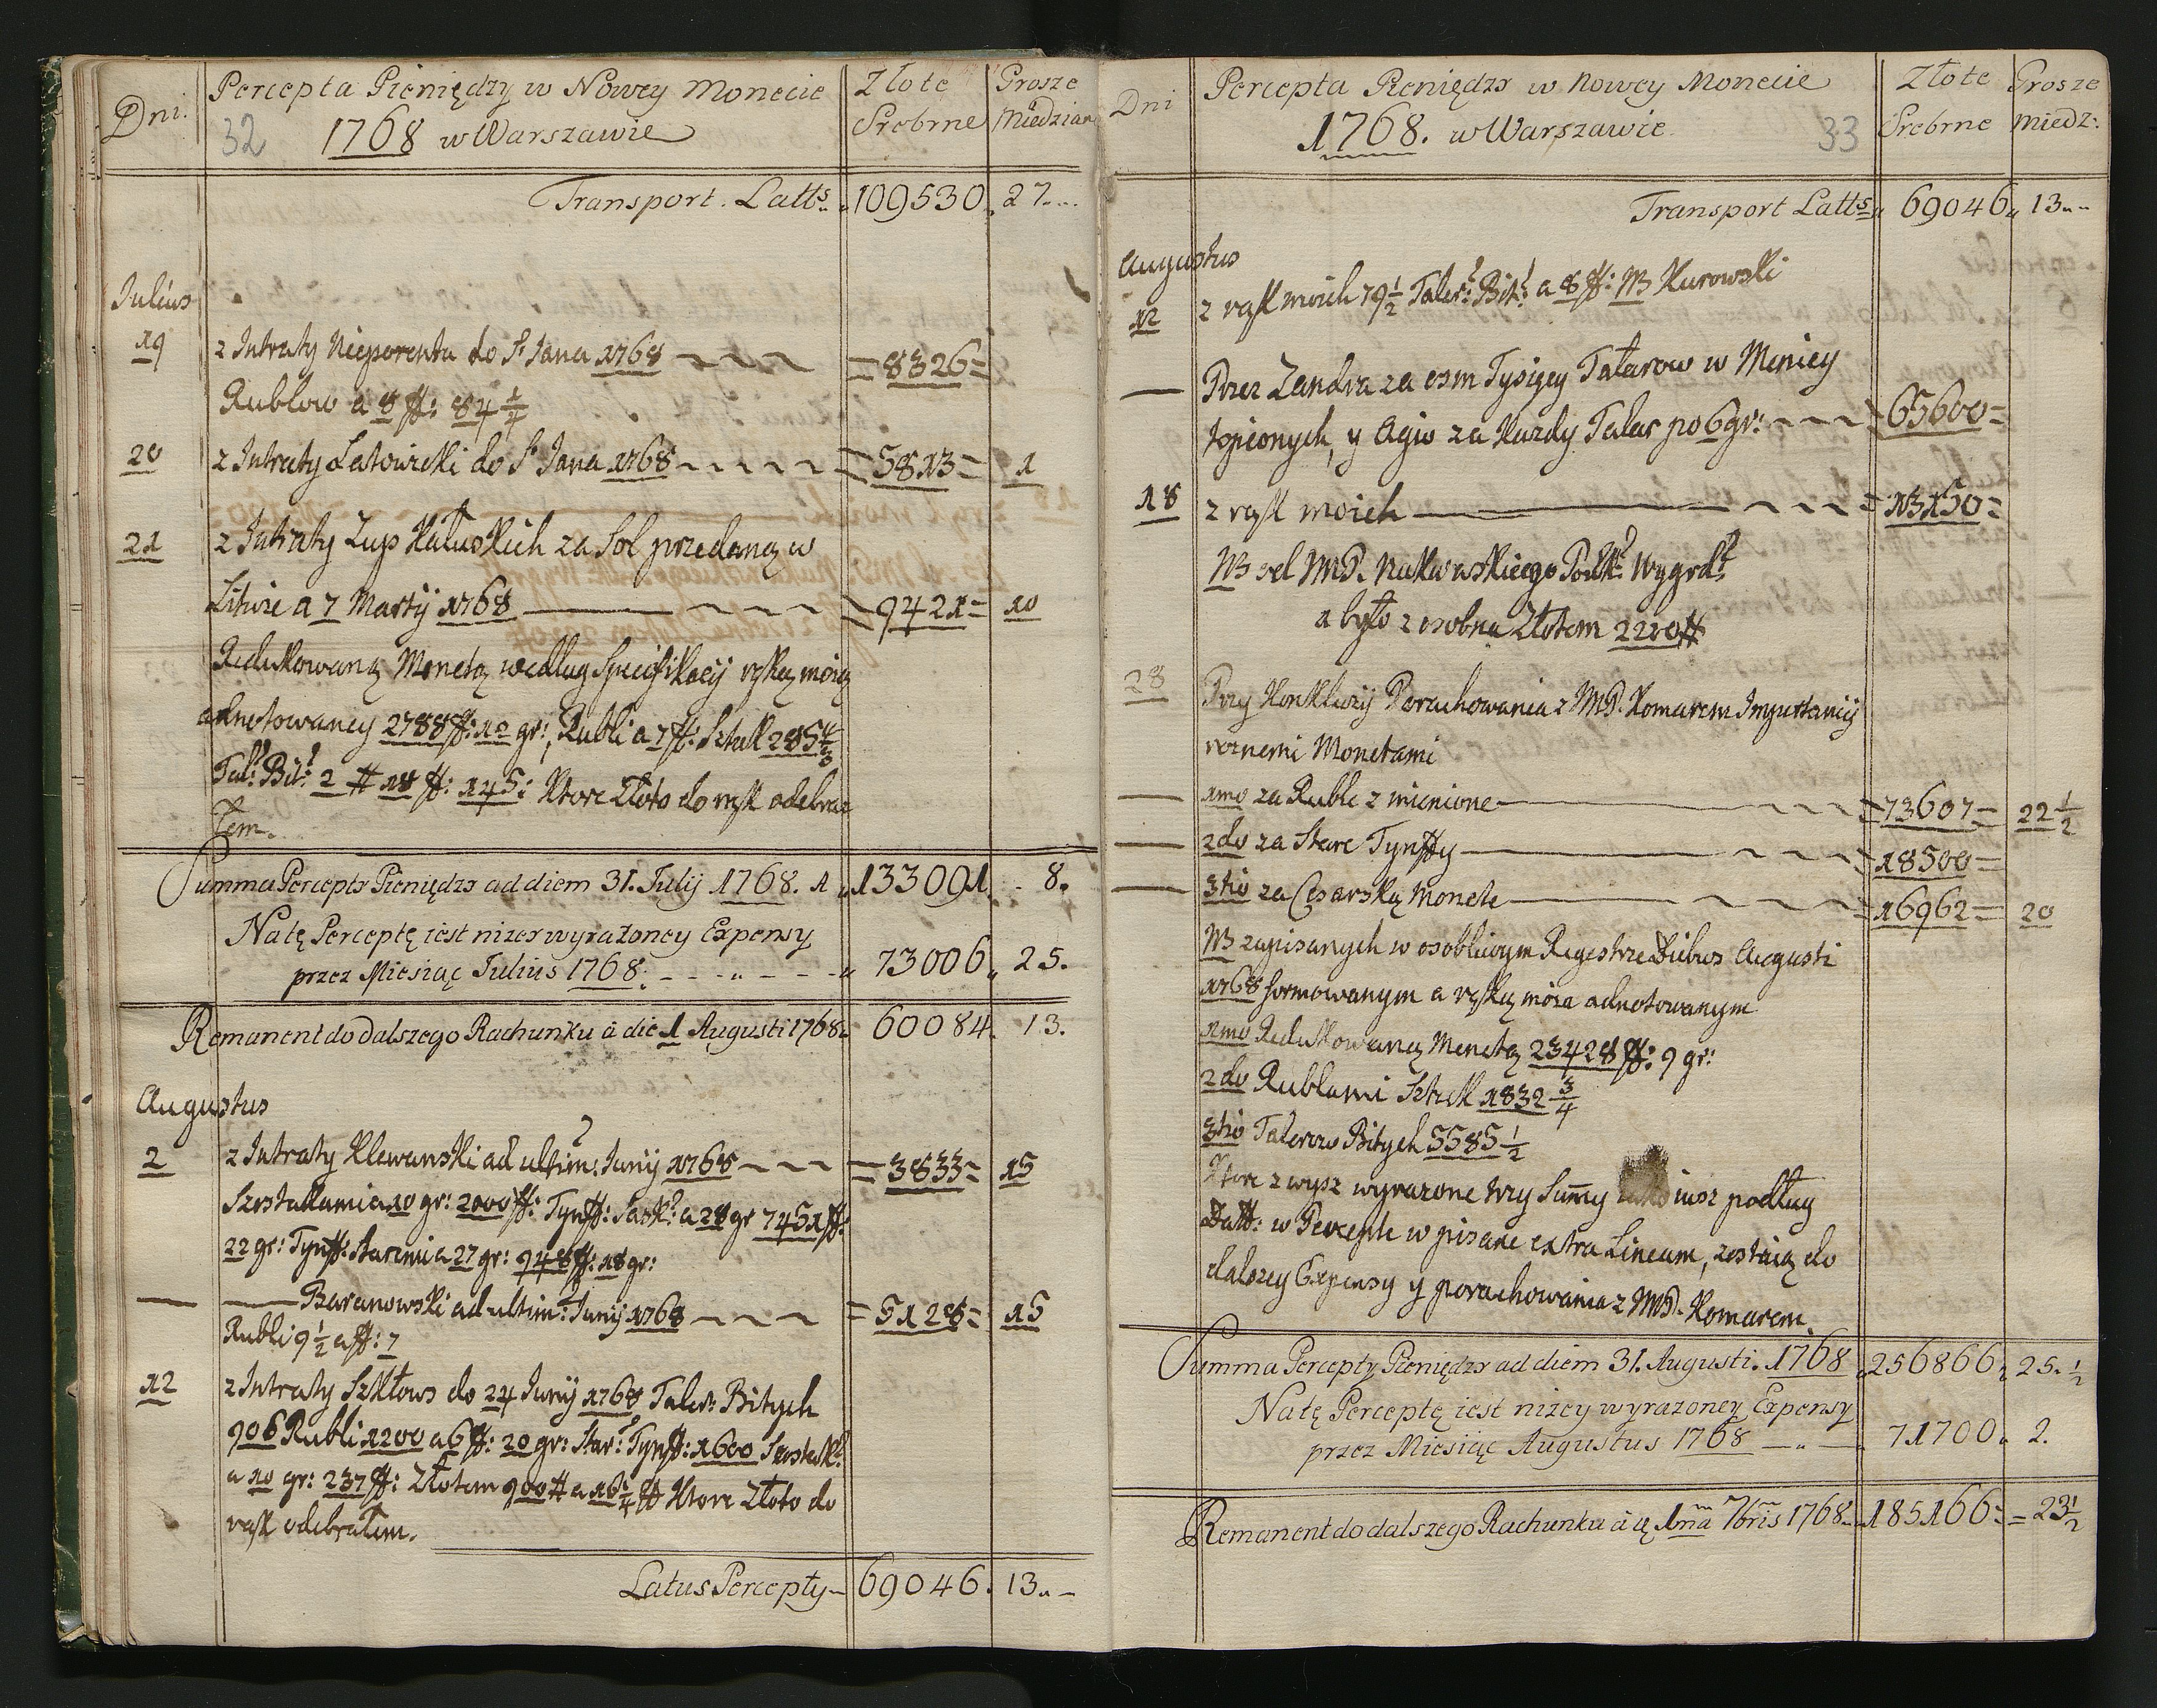 Dni.
Percepta Pieniędzy w Nowey Monecie
32 1768 w Warszawie
Złote Srebrne
Grosze Miedziane
Transport. Latts. 109530. 27.
Julius
19 z Intraty Nieporenta do S. Jana 1768 =8326=
Rublow a 8 ff: 84 1/4
20 z Intraty Latowicki do S Jana 1768 =5813= 1
21 z Intraty Zup Kałuskich za Sol przedaną w
Litwie a 7 Martij 1768 =9421= 10
Redukowaną Monetą według Specifikacij ręką moią
adnotowaney 2788 ff: 10 gr:, Rubli a 7 ff: Sztuk 285
Tal: Bit: 2 # 18 ff: 145: Ktore Złoto do rąk odebra
łem.
Summa Percepty Pieniędzy ad diem 31. Julij 1768. 133091. 8.
Na tę Perceptę iest nizey wyrazoney Expensy
przez Miesiąc Julius 1768. 73006. 25.
Remanent do dalszego Rachunku a die 1 Augusti 1768. 60084. 13.
Augustus
2 z Intraty Klewanski ad ultim: Junij 1768 =3833= 15
Szostakami a 10 gr: 2000 ff: Tynff: Sask: a 28 gr 7451 ff:
22 gr: Tynff: staremi a 27 gr: 948 ff: 18 gr:
— Baranowski ad ultim: Junij 1768 =5128= 15
Rubli 9 1/2 a ff: 7
12 z Intraty Szkłows do 24 Junij 1768 Taler: Bitych
906 Rubli 1200 a 6 ff: 20 gr: Star: Tynff: 1600 Szostak:
a 10 gr: 237 ff: Złotem 900 # a 16 3/4 ff Ktore Złoto do
rąk odebrałem.
Latus Percepty 69046. 13.
Dni
Percepta Pieniędzy w Nowey Monecie
1768. w Warszawie 33
Złote Srebrne
Grosze Miedz:
Transport Latts 69046. 13.
Augustus
12 z rąk moich 79 1/2 Taler: Bit: a 8 ff: NB Kurowski
— Przez Zandra za osm Tysięcy Talarow w Menicy
topionych, y Agio za Kazdy Talar po 6 gr: =65600=
18 z rąk moich =13150=
NB od JMP. Nakwaskiego Podk: Wygrd:
a było z osobna Złotem 2200 #
28 Przy Konkluzij Porachowania z JMP. Komarem Importancij
roznemi Monetami
— 1mo za Ruble zmienione =73607= 22 1/2
— 2do za Stare Tynffy =18500=
— 3tio za Cęsarską Monetę =16962= 20
NB zapisanych w osobliwym Regestrze Diebus Augusti
1768 formowanym a ręką moią adnotowanym
1mo Redukowaną Monetą 23428 ff: 9 gr:
2do Rublami Sztuk 1832 3/4
3tio Talerow Bitych 5585 1/2
Ktore zwysz wyrazone trzy Summy iusz podług
Datt: w Percepte wpisane extra Lineam, zostaią do
dalszey Expensy y porachowania z JMP. Komarem.
Summa Percepty Pieniędzy ad diem 31. Augusti. 1768 256866. 25. 1/2
Na tę Perceptę iest nizey wyrazoney Expensy
przez Miesiąc Augustus 1768 71700. 2.
Remanent do dalszego Rachunku a d 1ma 7bris 1768. 185166. 23 1/2